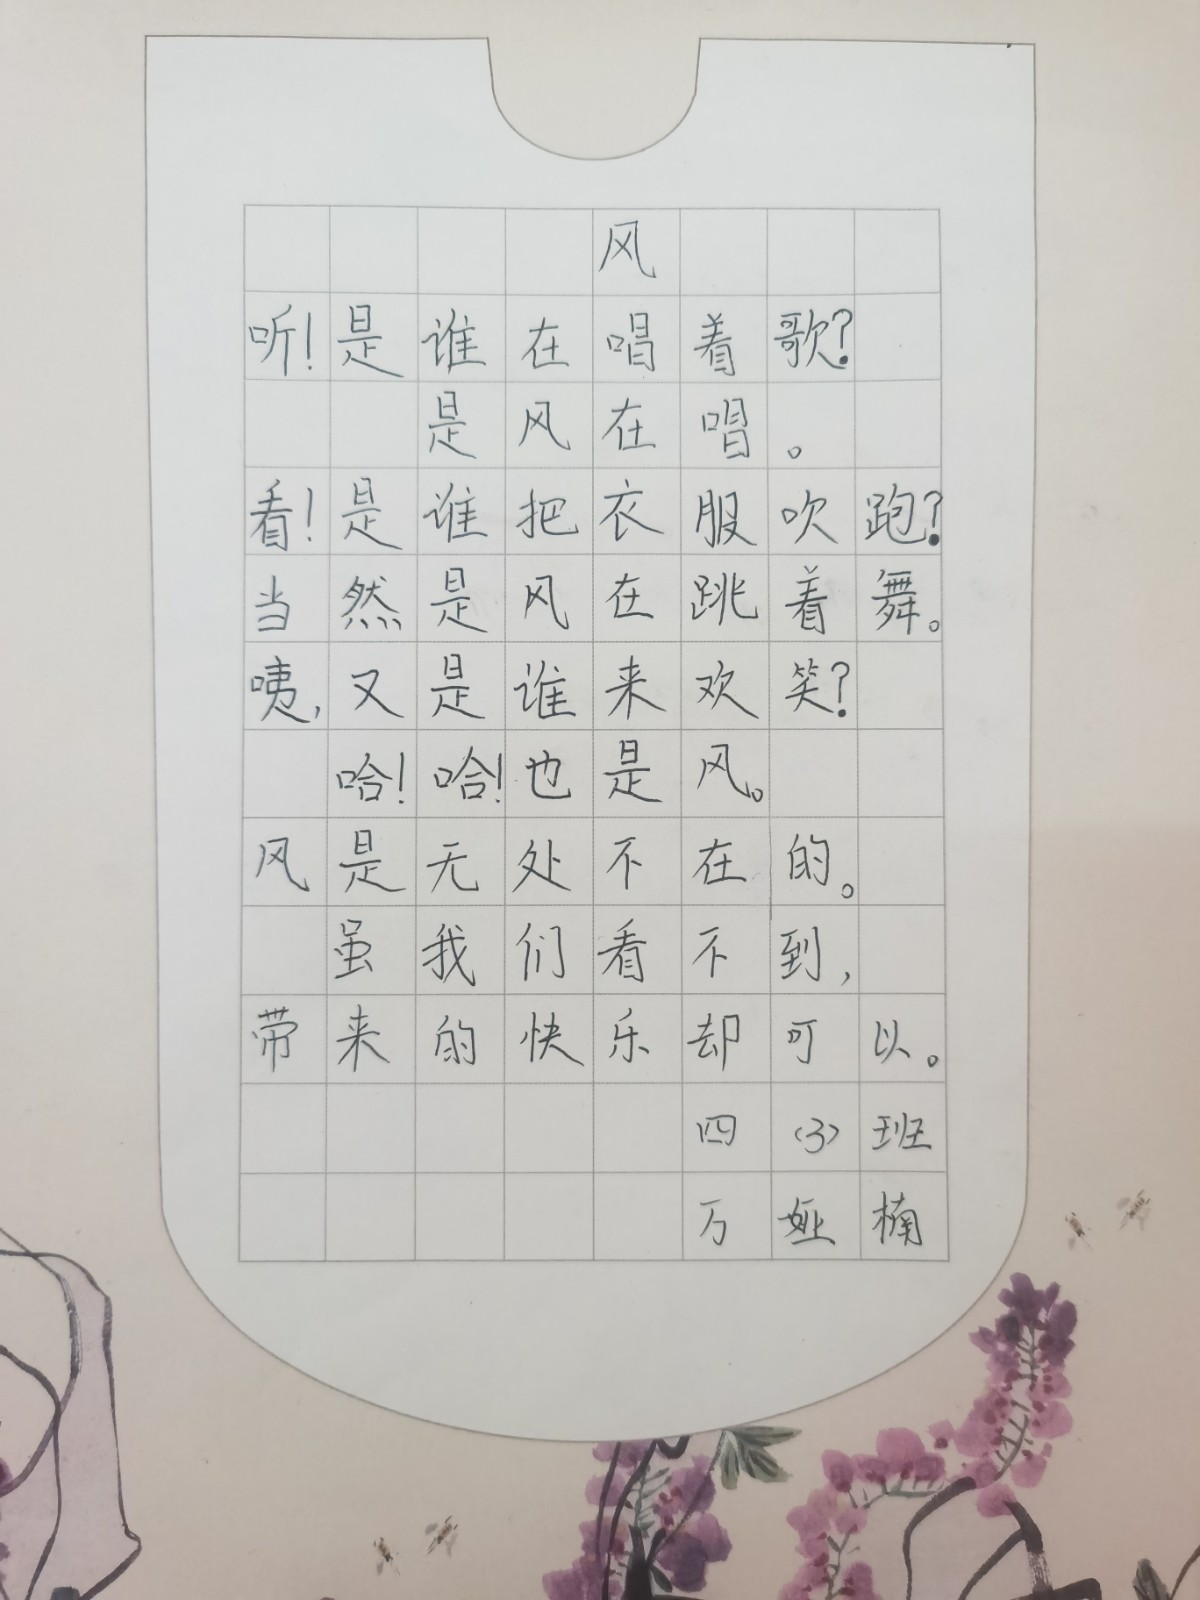 风
听!是谁在唱着歌?
是风在唱。
看!是谁把衣服吹跑?
当然是风在跳着舞。
咦,又是谁来欢笑?
哈!哈!也是风。
风是无处不在的。
虽我们看不到,
带来的快乐却可以。
四(3)班
万娅楠